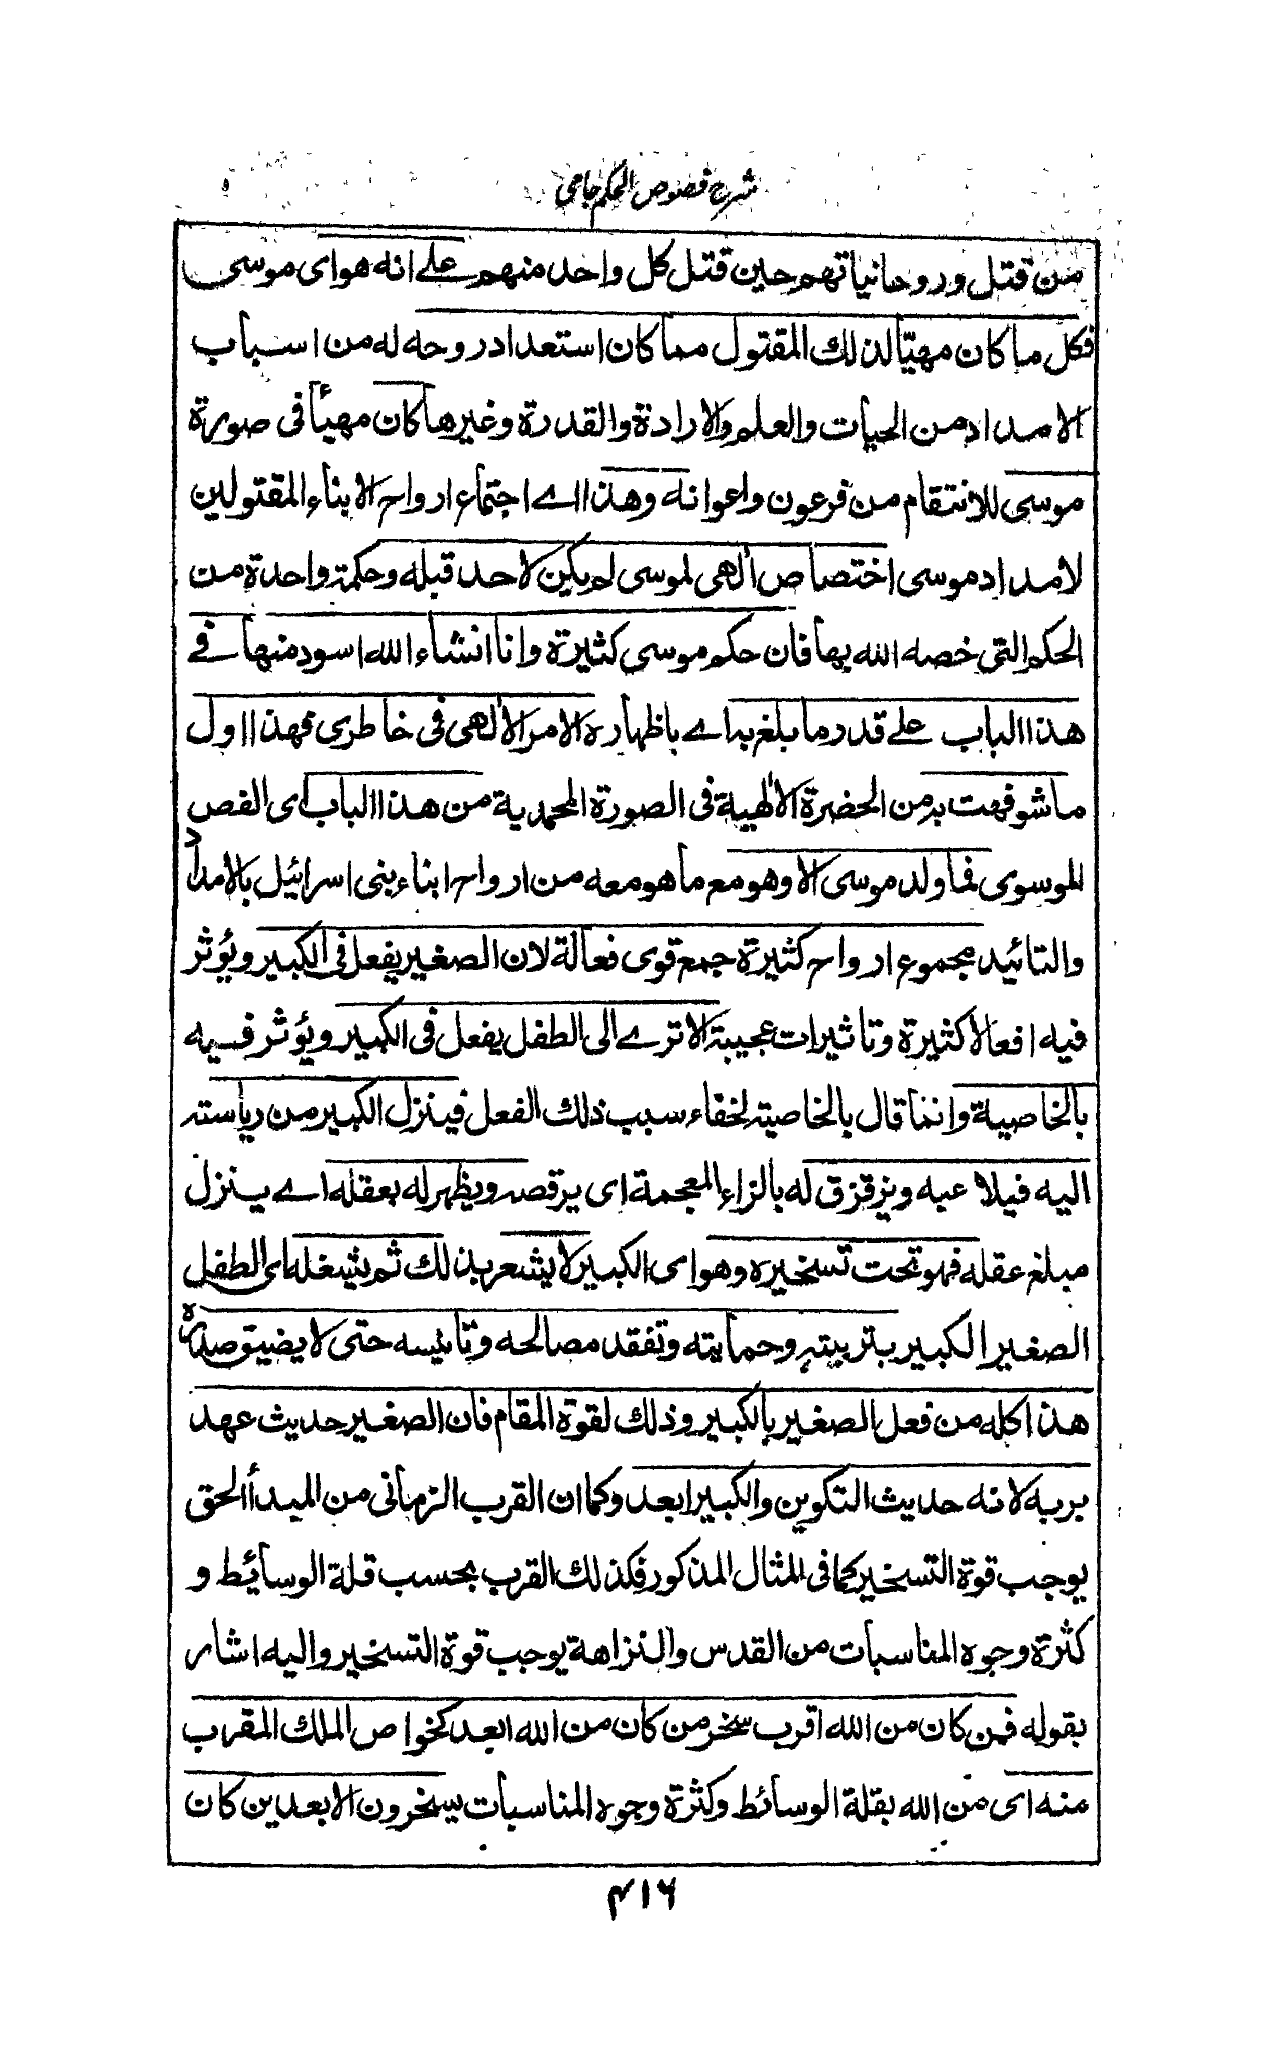 شرح فصوص الحكم جامی
من قتل وروحانياتهم حين قتل كل واحد منهم علے انه هو ای موسی
فكل ما كان مهيّا لذلك المقتول مما كان استعداد روحه له من اسباب
الامداد من الحيٰت والعلم والارادة والقدرة وغيرها كان مهيأ فی صورة
موسی للانتقام من فرعون واعوانه وهذا اے اجتماع ارواح الابناء المقتولين
لامداد موسی اختصاص ألهی لموسی لم يكن لاحد قبله وحكمة واحدة من
الحكم التی خصه الله بها فان حكم موسی كثيرة وانا انشاء الله اسود منها فے
هذا الباب علے قدر ما بلغ به اے باظهاره الامر الألهی فی خاطری فهذا اول
ما شوفهت به من الحضرة الألهية فی الصورة المحمدية من هذا الباب ای الفص
الموسوی فما ولد موسی الا وهو مع ما هو معه من ارواح ابناء بنی اسرائيل بالامداد
والتائيد مجموع ارواح كثيرة جمع قوی فعالة لان الصغير يفعل فی الكبير ويؤثر
فيه افعالا كثيرة وتاثيرات عجيبة الا ترے الی الطفل يفعل فی الكبير ويؤثر فيه
بالخاصية وانما قال بالخاصية لخفاء سبب ذلك الفعل فينزل الكبير من رياسته
اليه فيلاعبه ويزقزق له بالزاء المعجمة ای يرقصه ويظهر له بعقله اے ينزل
مبلغ عقله فهو تحت تسخيره وهو ای الكبير لا يشعر بذلك ثم يشغله ای الطفل
الصغير الكبير بتربيته وحمايته وتفقد مصالحه وتانيسه حتی لا يضيق صدره
هذا كله من فعل الصغير بالكبير وذلك لقوة المقام فان الصغير حديث عهد
بربه لانه حديث التكوين والكبير ابعد وكما ان القرب الزمانی من المبدأ الحق
يوجب قوة التسخير كما فی المثال المذكور فكذلك القرب بحسب قلة الوسائط و
كثرة وجوه المناسبات من القدس والنزاهة يوجب قوة التسخير واليه اشار
بقوله فمن كان من الله اقرب سخر من كان من الله ابعد كخواص الملك المقرب
منه ای من الله بقلة الوسائط وكثرة وجوه المناسبات يسخرون الابعدين كان
۴۱۶